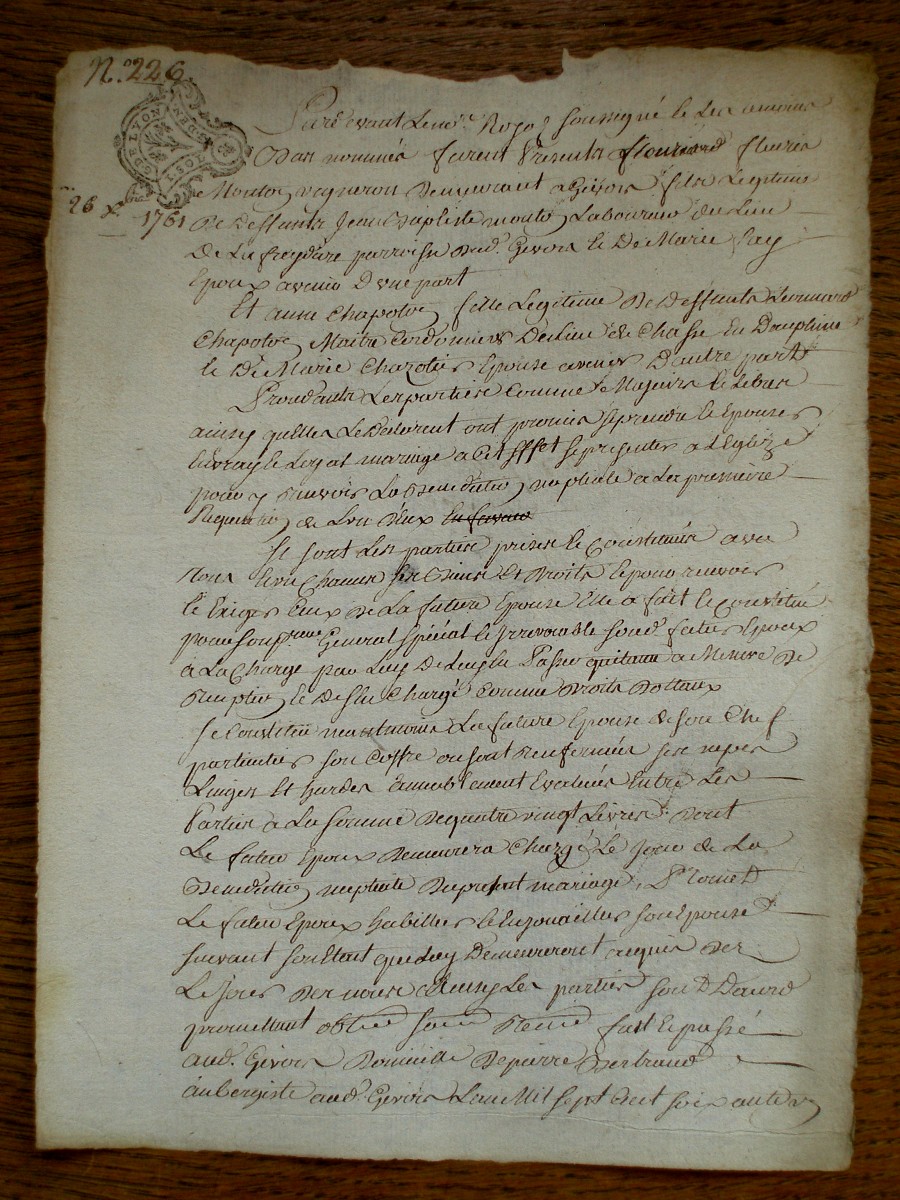 N.o 226.
DE LYON
26 X.
1761
Pardevant Le no.re Royal soussigné et les temoins
Bas nommés furent presents fleury
Mouton vigneron demeurant a Givors fils Legitime
de deffunts Jean Baptiste mouton Laboureur du Lieu
de La freydiere parroisse dud. Givors et de Marie fay
Epoux avenir d'une part
Et anne Chapolon fille Legitime de deffunts Leonnard
Chapolon Maitre Cordonnier du Lieu de Chasse En Dauphiné
et de Marie Charetier Epouse avenir d'autre part
Procedants Les parties Comme Majeurs et Libres
ainsy quelles Le declarent ont promis se prendre et Epouser
En vray et Loyal mariage a Cet Effet se presenter a L'Eglize
pour y recevoir La Benediction nuptiale a La premiere
Requisition de L'un d'Eux
Se sont Les parties prises et Constituées avec
tous Leurs Chacun ses Biens Et droits et pour recevoir
et Exiger Ceux de La future Epouse Elle a fait et Constitué
pour son procureur General special et Irrevocable sond. futur Epoux
a La Charge par Luy de Passer quittance a Mesure de
reception et d'Estre Chargé Comme droits dottaux
Se Constitue neantmoins La future Epouse de son Chef
particulier son Coffre ou sont renfermés ses nipes
Linges Et hardes amiablement Evalués Entre Les
Parties a La somme de quatre vingt Livres dont
Le futur Epoux demeurera Chargé Le Jour de La
Benediction nuptiale du present mariage, Promet
Le futur Epoux habiller et Enjoailler son Epouse
suivant son Etat que Luy demeureront acquis des
Le Jour des noces Ainsy Les parties sont d'accord
promettant oblid. soum. renon. fait et passé
aud. Givors Domicille de pierre Bertrand
aubergiste aud. Givors L'an Mil sept Cent soixante un